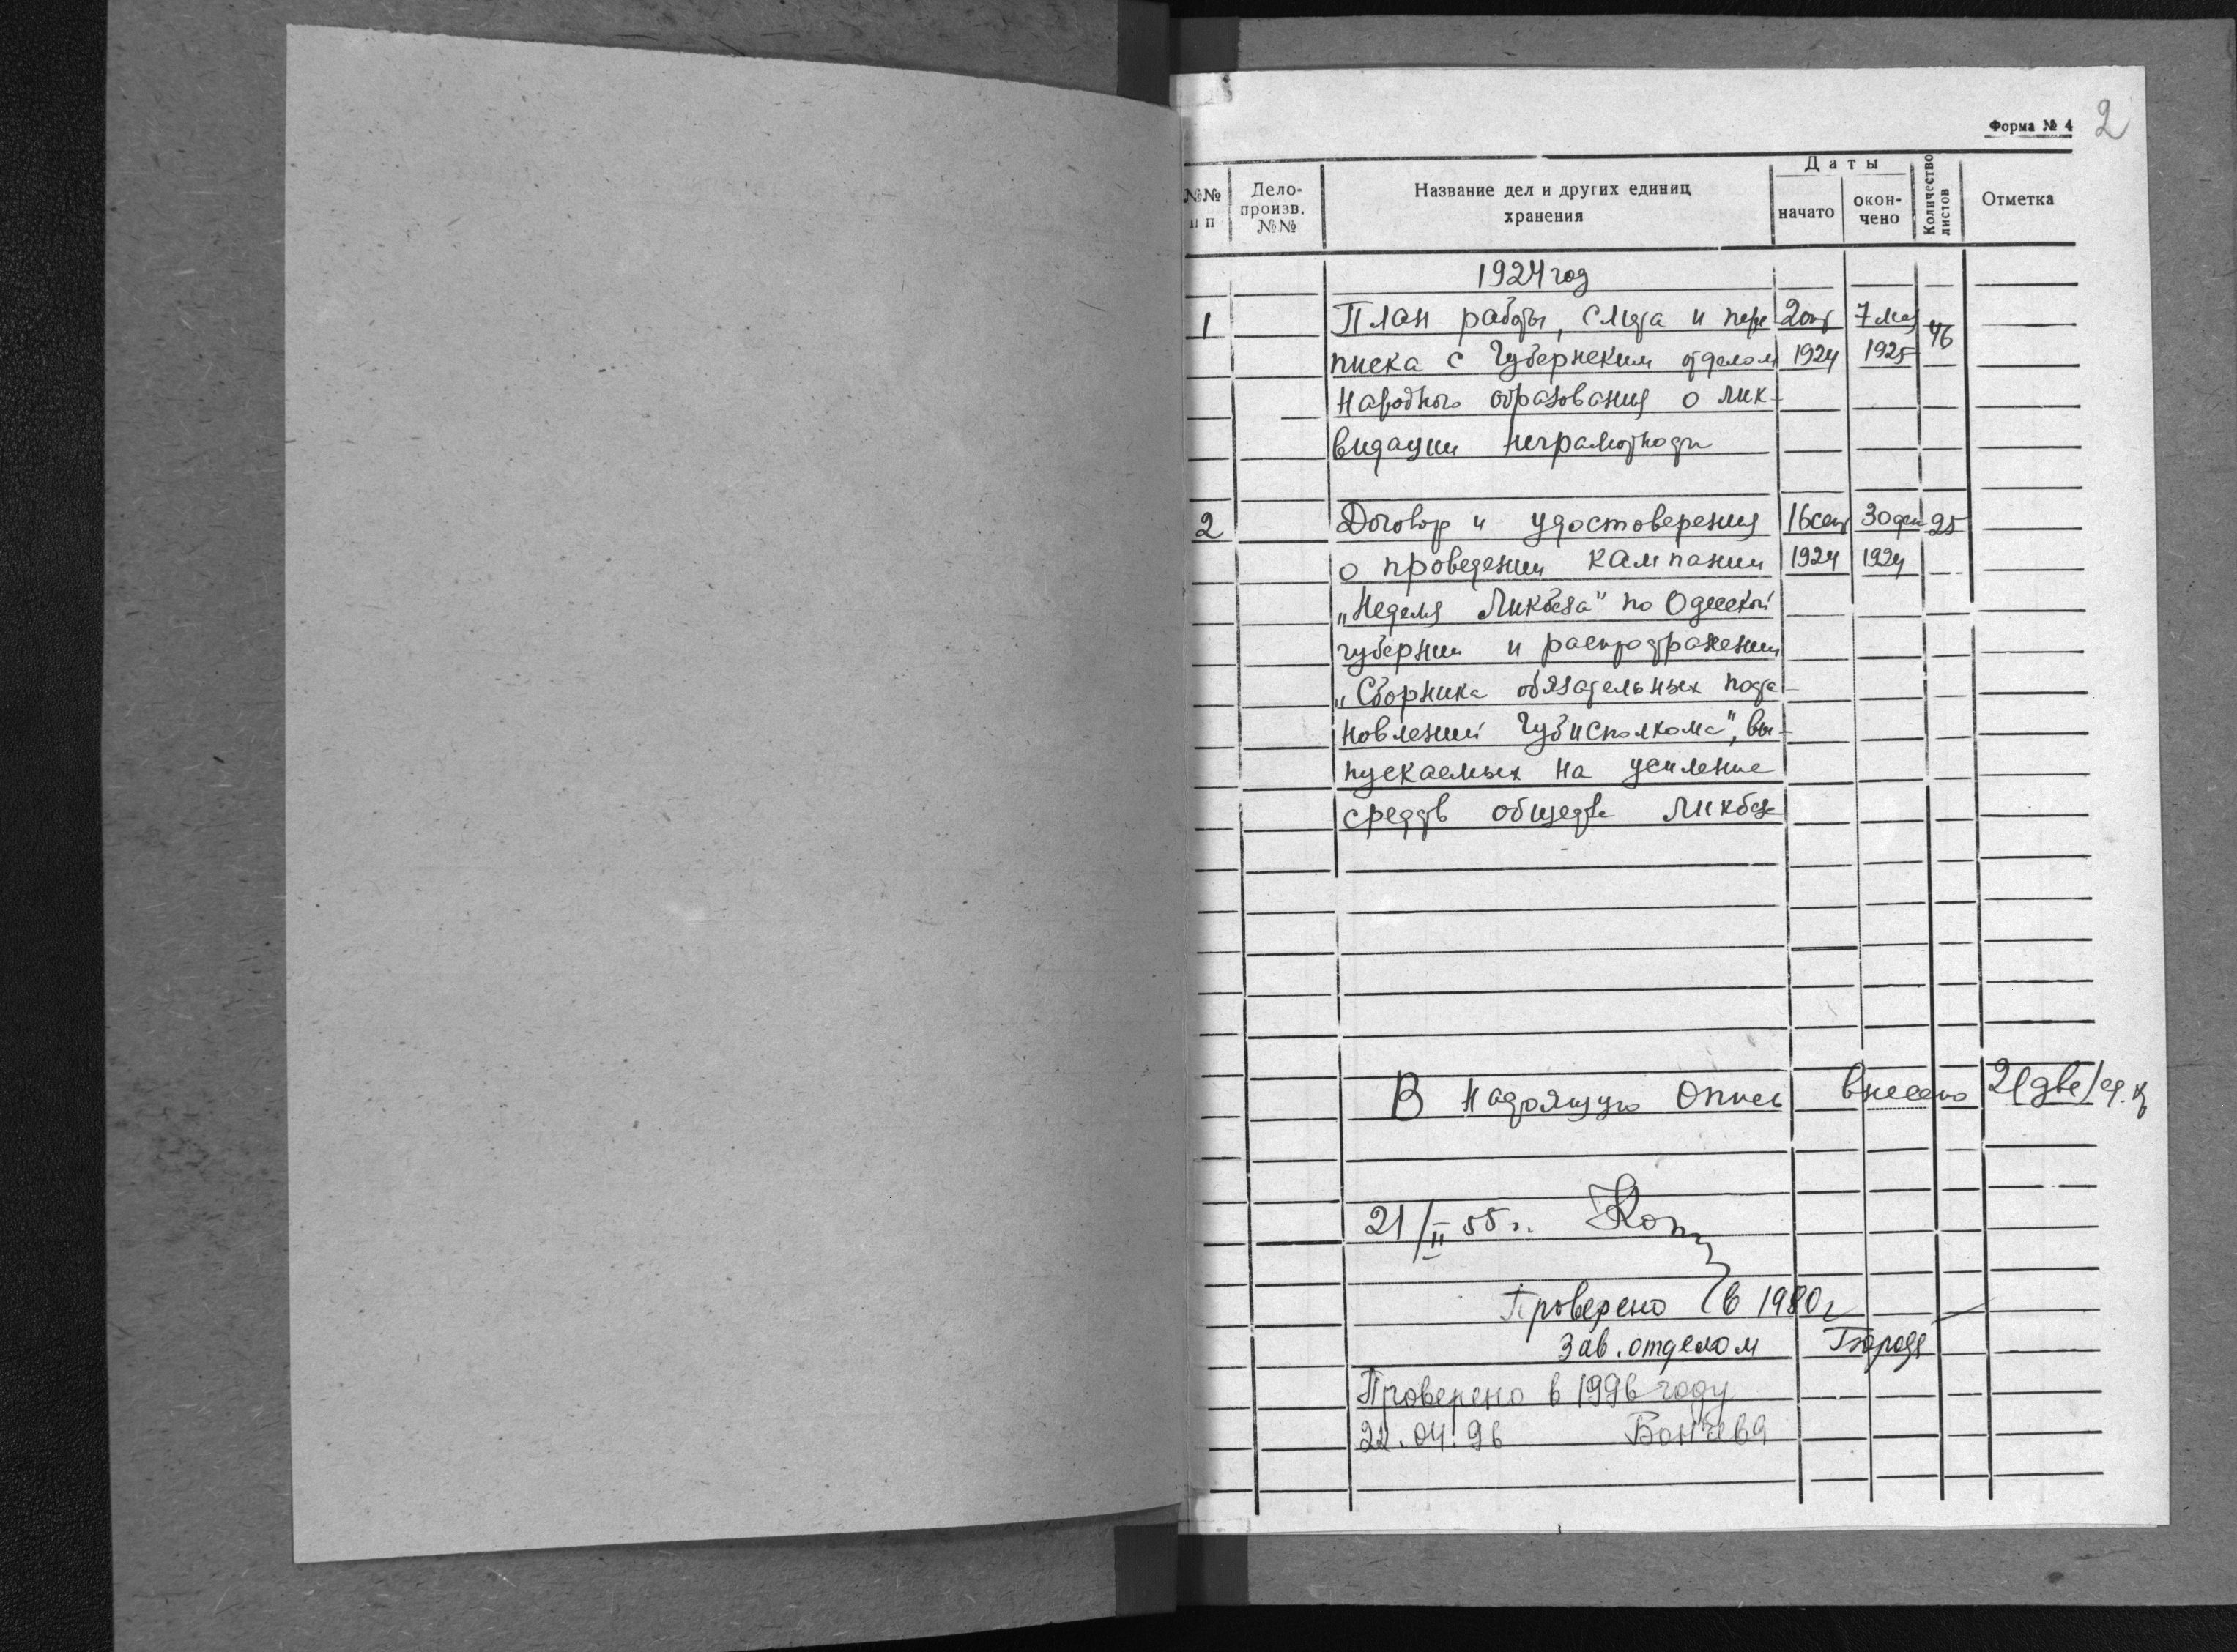 2
Форма № 4
№№ п п
Дело-произв. №№
Название дел и других единиц хранения
Даты
начато
окончено
Количество листов
Отметка
1924 год
1 План работы, смета и пере 2 окт 7 мая 46
писка с Губернским отделом 1924 1925
Народного образования о лик-
видации неграмотности
2 Договор и удостоверения 16 сен 30 дек 25
о проведении кампании 1924 1924
„Неделя Ликбеза" по Одесской
губернии и распространении
„Сборника обязательных поста-
новлений Губисполкома", вы-
пускаемых на усиление
средств общества Ликбез
В настоящую опись внесено 2 (две) ед. х
21/II 55 г.
Проверено в 1980 г
Зав. отделом
Проверено в 1996 году
22.04.96 Бончева